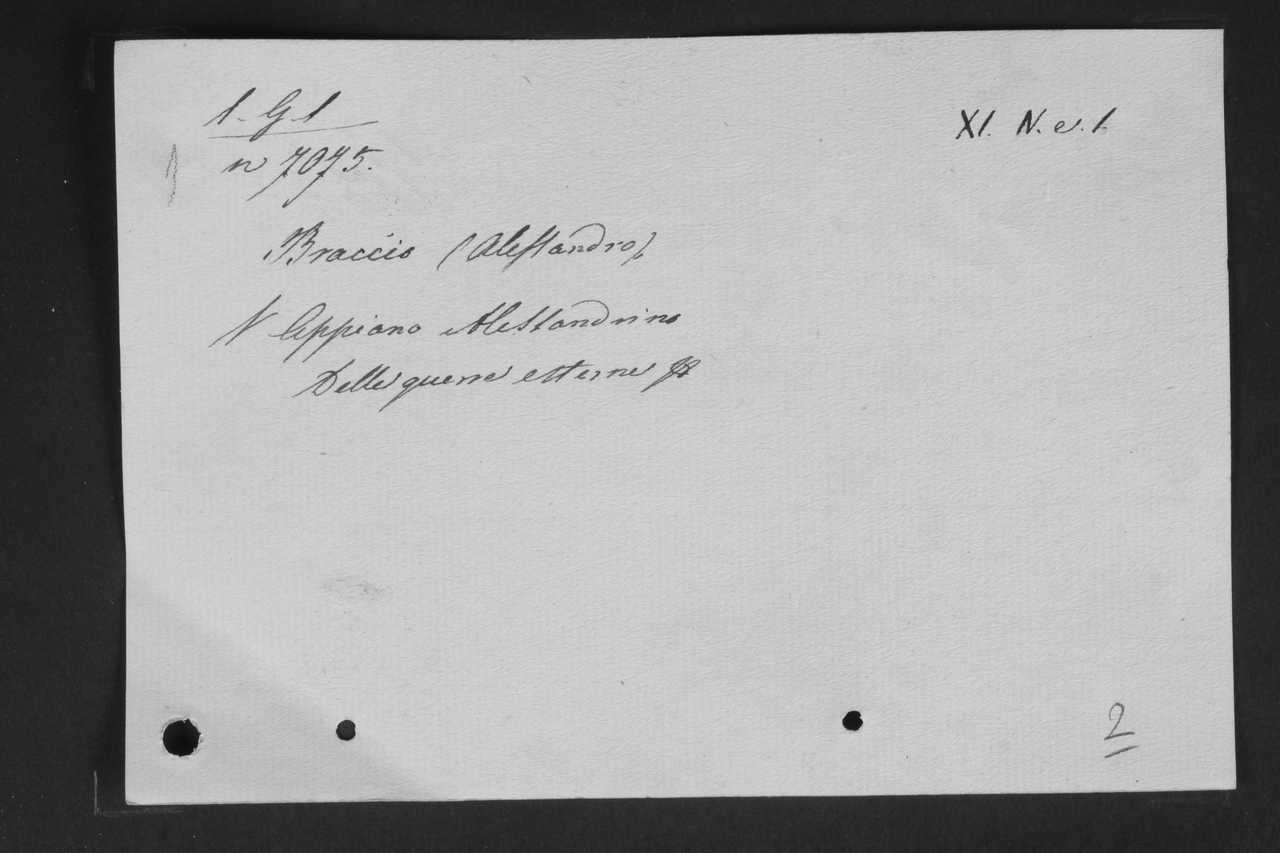 1-G-1
n 7075.
XI. N. e. 1.
Braccio (Alessandro)
V Appiano Alessandrino
Delle guerre esterne
2